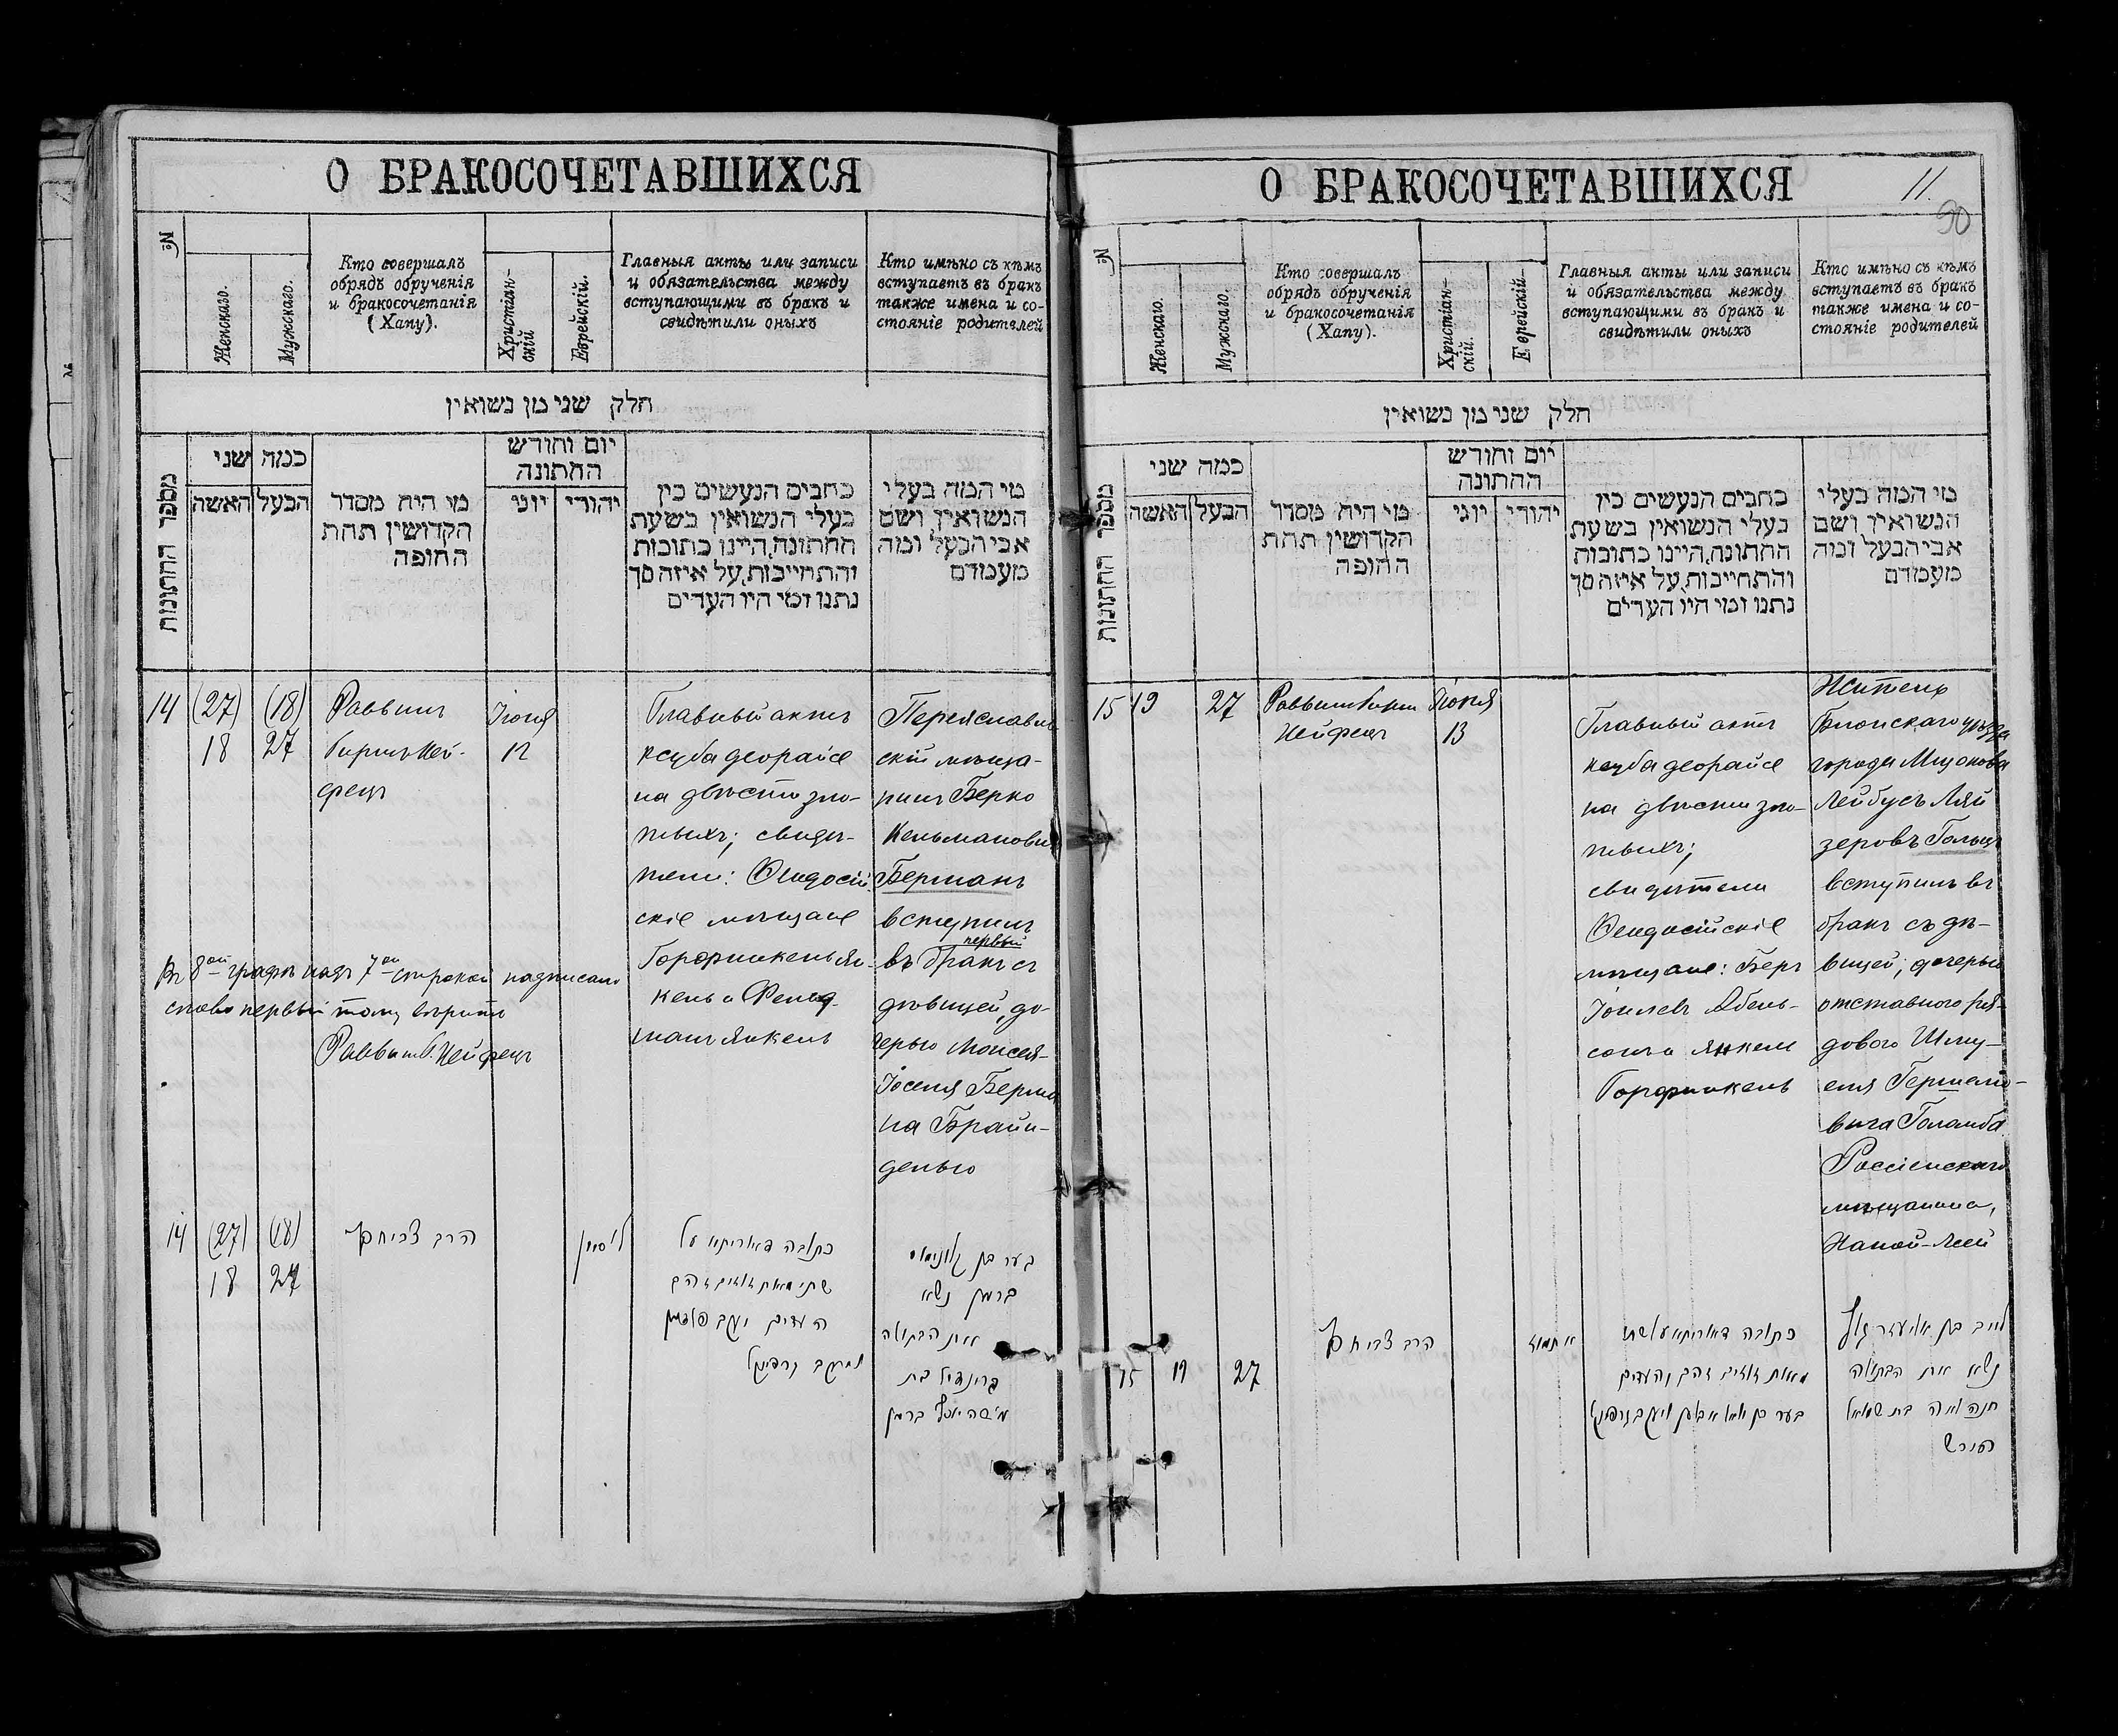 О БРАКОСОЧЕТАВШИХСЯ
№
Женскаго.
Мужскаго.
Кто совершалъ
обрядъ обрученія
и бракосочетанія
(Хапу).
Христіан-
скій
Еврейскій.
Главныя акты или записи
и обязательства между
вступающими въ бракъ и
свидѣтили оныхъ
Кто имѣно съ кѣмъ
вступаетъ въ бракъ
также имена и со-
стояніе родителей
חלק שני מן נשואין
מספר החתונות
כמה שני
האשה
הבעל
מי היה מסדר
הקדושין תחת
החופה
יום וחודש
החתונה
יוני
יהודי
כתבים הנעשים בין
בעלי הנשואין בשעת
החתונה, היינו כתובות
והתחייבות, על איזה סך
נתנו ומי היו העדים
מי המה בעלי
הנשואין ושם
אבי הבעל ומה
מעמדם
14
(27)
18
(18)
27
Раввинъ
Хей-
фецъ
Іюня
12
Главный актъ
ксуба деорайсе
на двѣсти зло-
тыхъ; свидѣ-
тели: Ѳеодосій-
скіе мѣщане
Горфинкель Ян-
кель и
Янкель
Переяслав
скій мѣща-
нинъ Берко
Кельманович
Берманъ
вступилъ
первый
въ бракъ съ
дѣвицей, до-
черью Моисея-
Іоселя Берма
на Брайн-
делью
Въ 8ой графѣ надъ 7ой строкой надписано
слово первый тому вѣрить
Раввинъ Б. Хейфецъ
14
(27)
18
(18)
27
הרב
לסיון
כתובה דאורייתא על
שתי מאות זוזים זהב
העדים יעקב
בער בן
ברמן נשא
את הבתולה
בריינדיל בת
משה יוסף ברמן
О БРАКОСОЧЕТАВШИХСЯ
11.
90
№
Женскаго.
Мужскаго.
Кто совершалъ
обрядъ обрученія
и бракосочетанія
(Хапу).
Христіан-
скій.
Еврейскій-
Главныя акты или записи
и обязательства между
вступающими въ бракъ и
свидѣтили оныхъ
Кто имѣно съ кѣмъ
вступаетъ въ бракъ
также имена и со-
стояніе родителей
חלק שני מן נשואין
מספר החתונות
כמה שני
האשה
הבעל
מי היה מסדר
הקדושין תחת
החופה
יום וחודש
החתונה
יוני
יהודי
כתבים הנעשים בין
בעלי הנשואין בשעת
החתונה, היינו כתובות
והתחייבות, על איזה סך
נתנו ומי היו העדים
מי המה בעלי
הנשואין ושם
אבי הבעל ומה
מעמדם
15
19
27
Раввинъ
Хейфецъ
Іюня
13
Главный актъ
ксуба деорайсе
на двѣсти зло-
тыхъ;
свидѣтели
Ѳеодосійскіе
мѣщане: Беръ
Іоилевъ Абель-
сонъ и Янкель
Горфинкель
Житель
Блонскаго уѣзда
города Мщонова
Лейбусъ Ляй
зеровъ Гольцъ
вступилъ въ
бракъ съ дѣ-
вицей, дочерью
отставного ря-
дового Шму-
еля Гершено-
вича Голомба
Россіенскаго
мѣщанина,
Ханой-Леей
15
19
27
הרב
א תמוז
כתובה דאורייתא
מאות זוזים זהב והעדים
בער בן
לייב בן אליעזר
נשא את הבתולה
חנה לאה בת שמואל